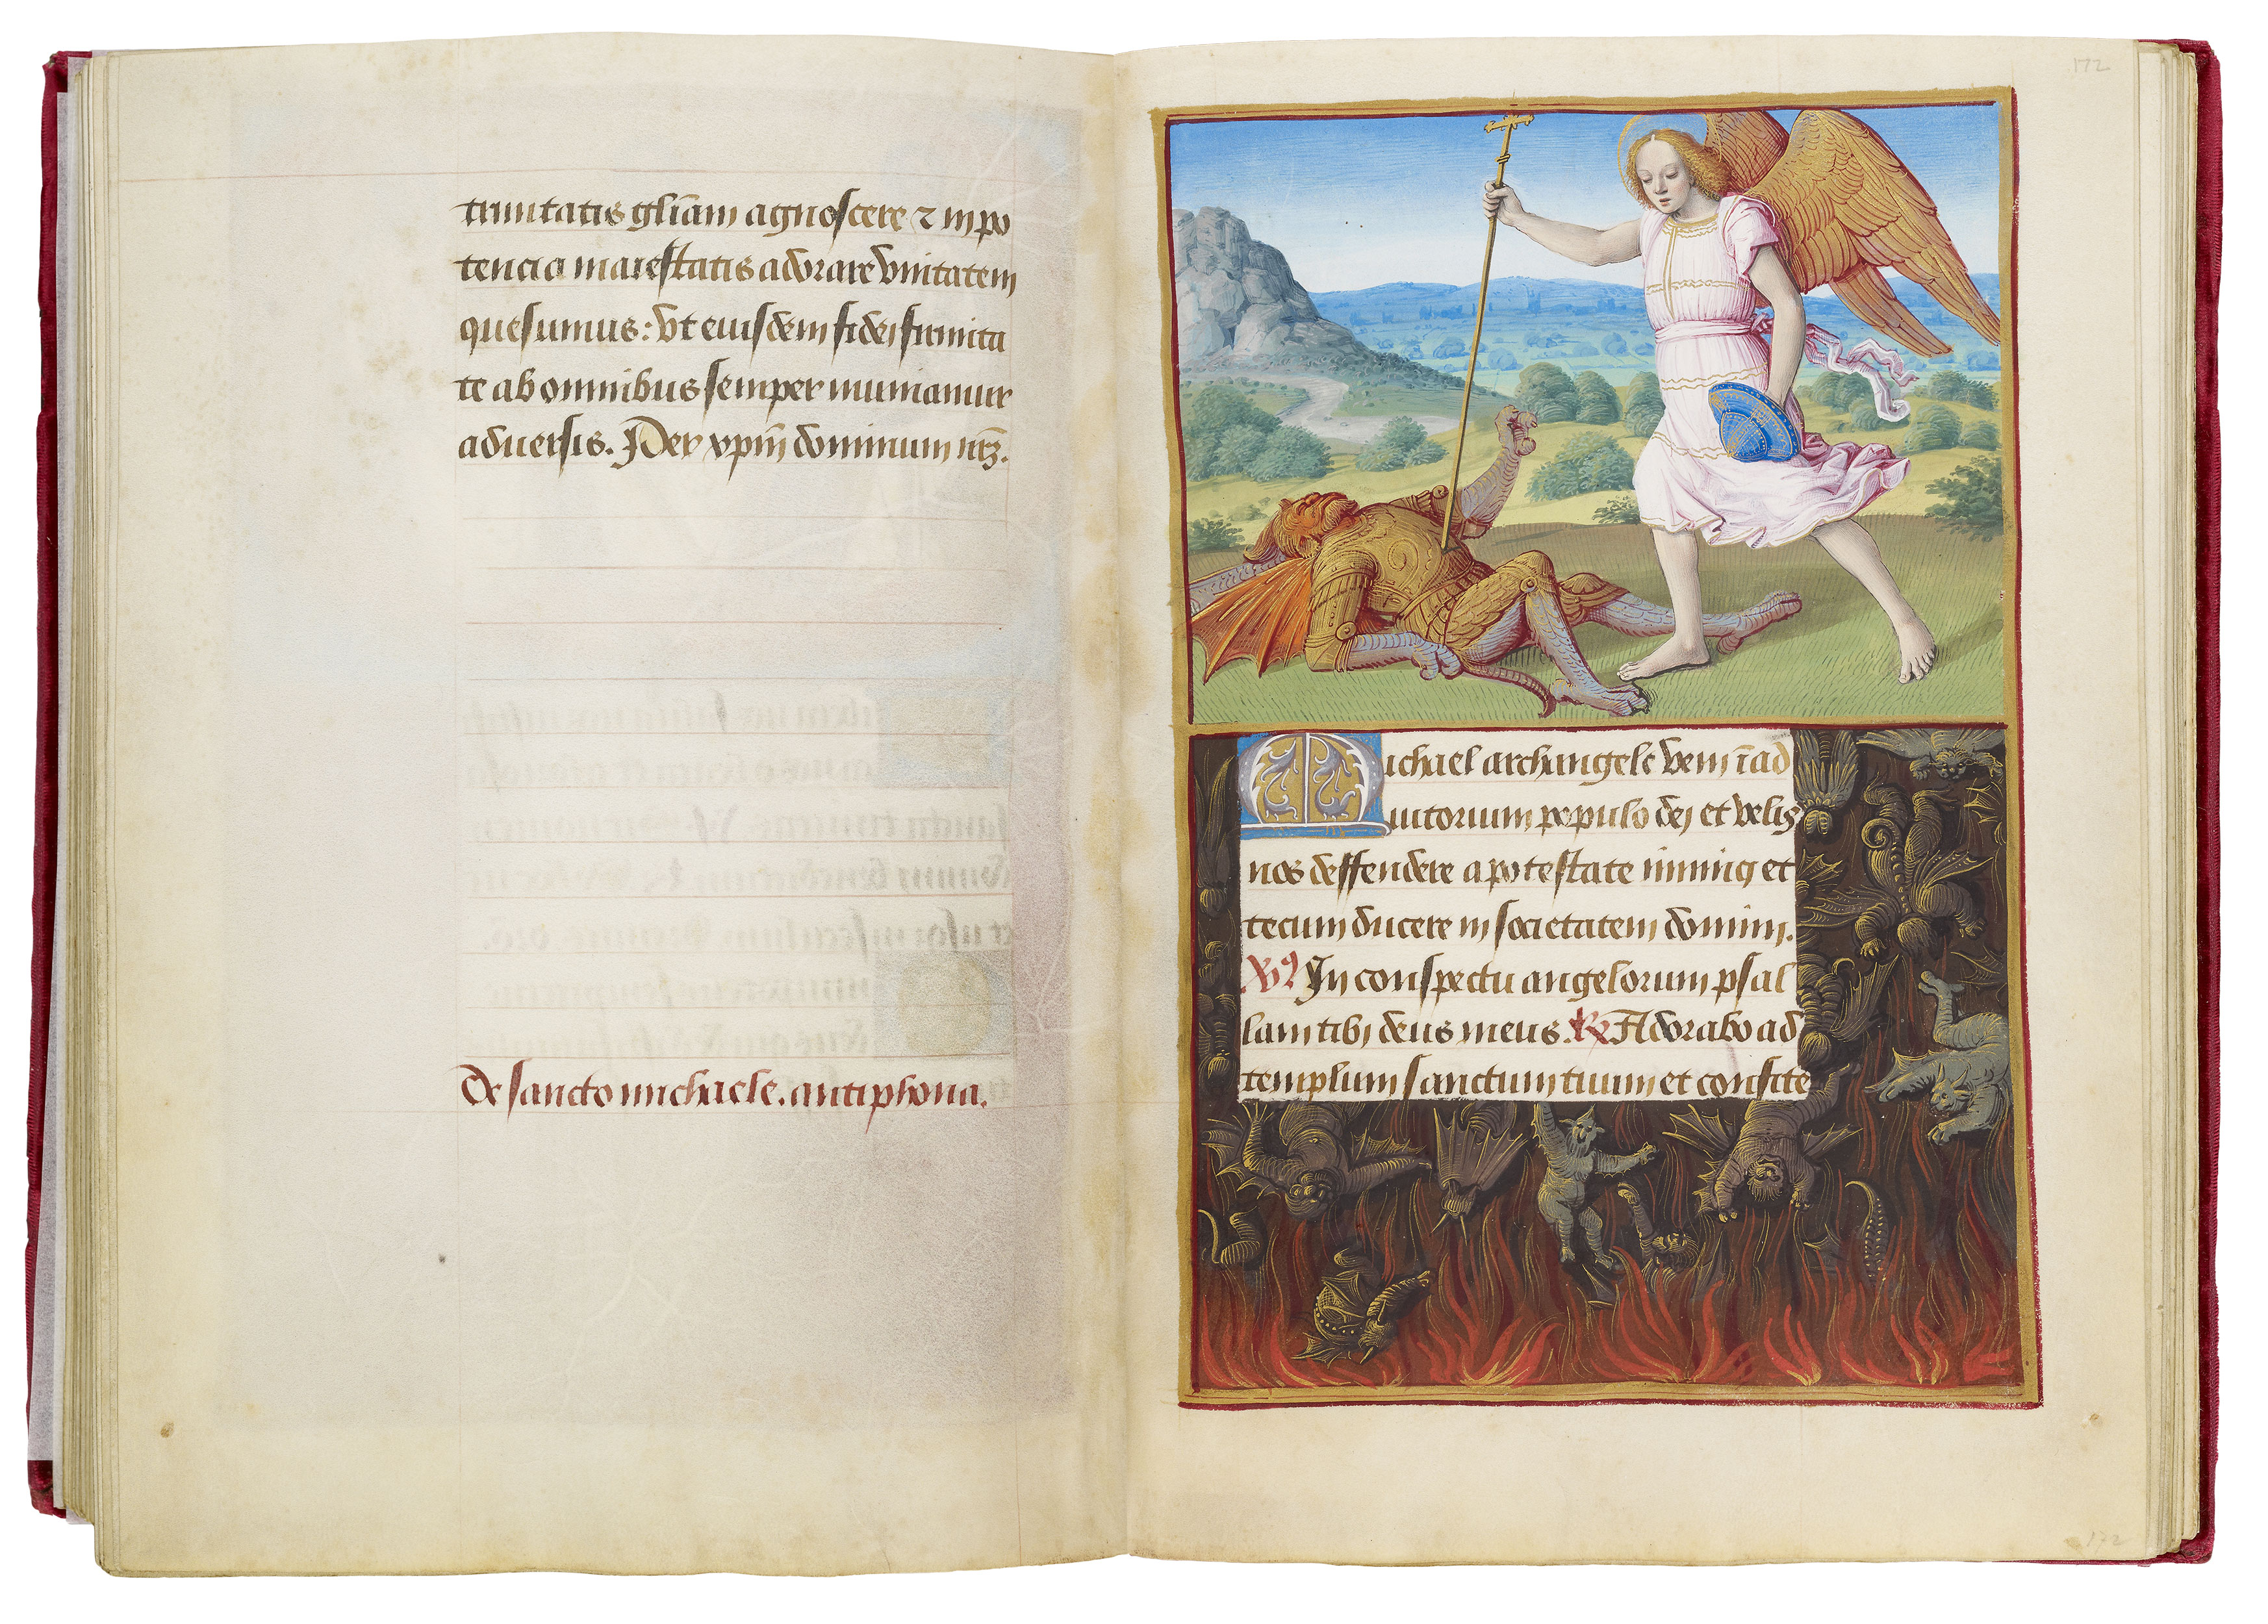 trinitatis gl̄iam agnoscere ⁊ in po
tencia maiestatis adorare vnitatem
quesumus: vt eiusdem fidei firmita
te ab omnibus semper muniamur
aduersis. Per xp̄m dominum nr̄ꝫ.
De sancto michaele. antiphona.
172
Michael archangele veni ī ad
iutorium populo dei et velis
nos deffendere a potestate inimici et
tecum ducere in societatem domini.
V9 In conspectu angelorum psal
lam tibi deus meus. ℟ Adorabo ad
templum sanctum tuum et confite
172